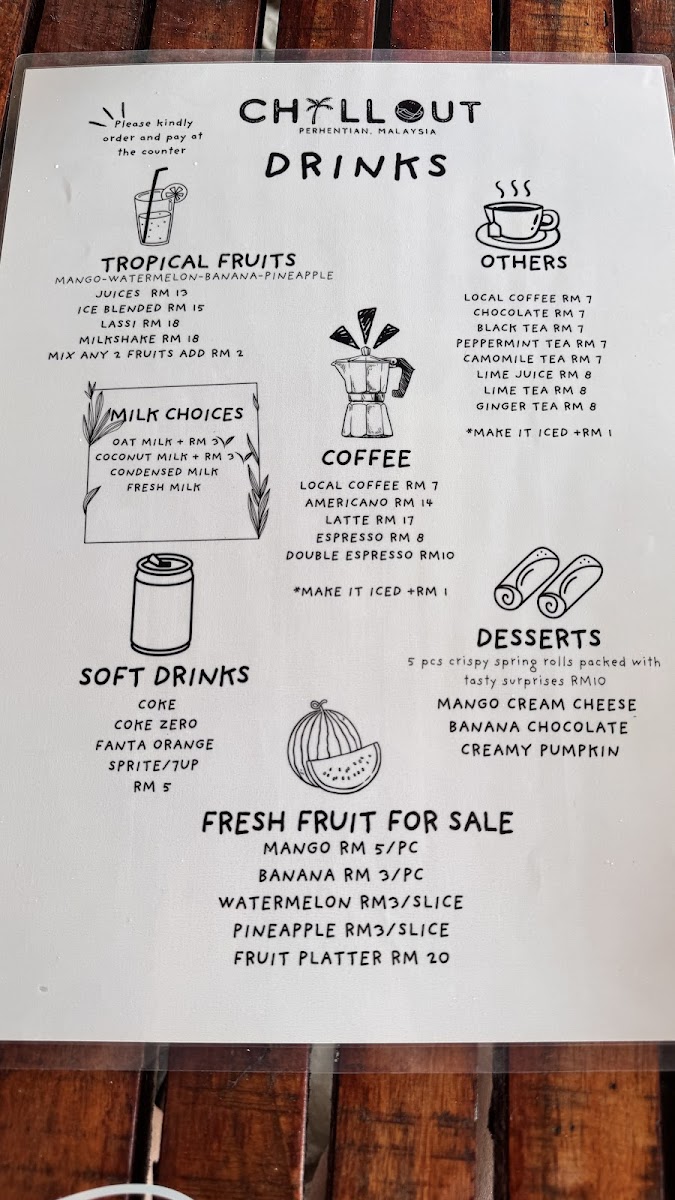 Please kindly
order and pay at
the counter
CHILLOUT
PERHENTIAN, MALAYSIA
DRINKS
TROPICAL FRUITS
MANGO-WATERMELON-BANANA-PINEAPPLE
JUICES RM 13
ICE BLENDED RM 15
LASSI RM 18
MILKSHAKE RM 18
MIX ANY 2 FRUITS ADD RM 2
MILK CHOICES
OAT MILK + RM 3
COCONUT MILK + RM 3
CONDENSED MILK
FRESH MILK
COFFEE
LOCAL COFFEE RM 7
AMERICANO RM 14
LATTE RM 17
ESPRESSO RM 8
DOUBLE ESPRESSO RM10
*MAKE IT ICED +RM 1
OTHERS
LOCAL COFFEE RM 7
CHOCOLATE RM 7
BLACK TEA RM 7
PEPPERMINT TEA RM 7
CAMOMILE TEA RM 7
LIME JUICE RM 8
LIME TEA RM 8
GINGER TEA RM 8
*MAKE IT ICED +RM 1
SOFT DRINKS
COKE
COKE ZERO
FANTA ORANGE
SPRITE/7UP
RM 5
DESSERTS
5 pcs crispy spring rolls packed with
tasty surprises RM10
MANGO CREAM CHEESE
BANANA CHOCOLATE
CREAMY PUMPKIN
FRESH FRUIT FOR SALE
MANGO RM 5/PC
BANANA RM 3/PC
WATERMELON RM3/SLICE
PINEAPPLE RM3/SLICE
FRUIT PLATTER RM 20